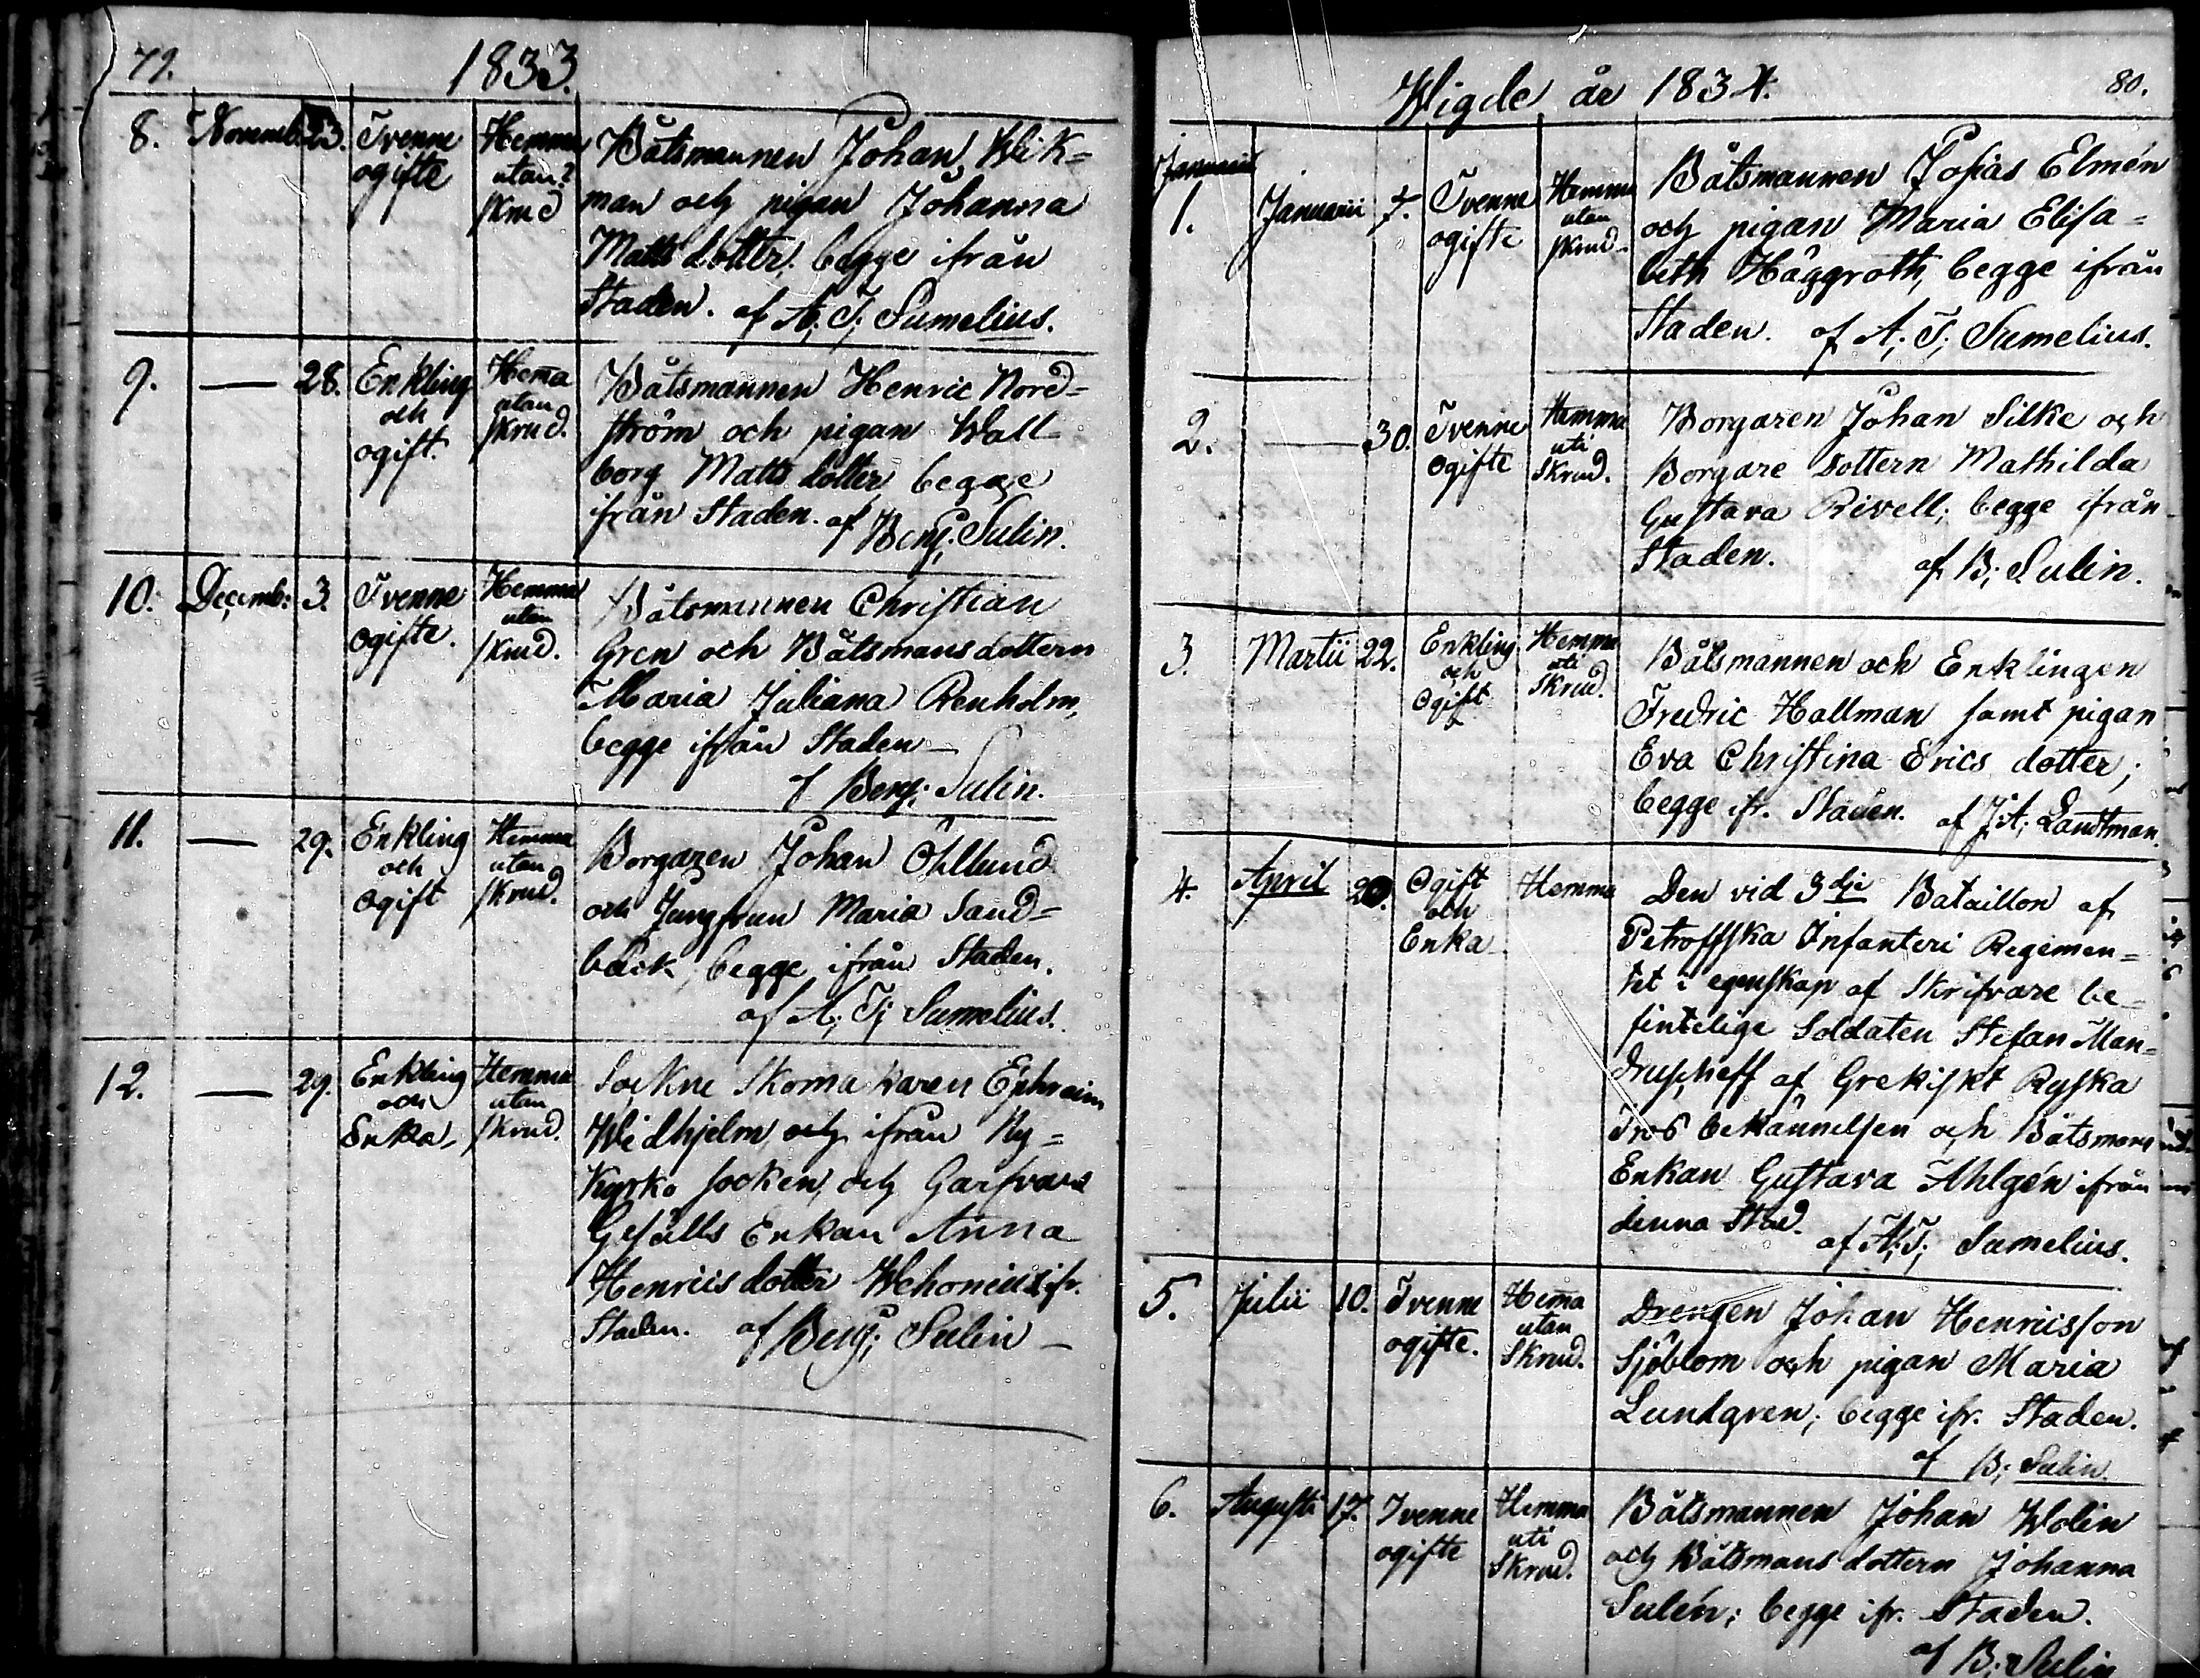 79.
1833.
8. Novemb. 23. Tvenne ogifte Hemma utan skrud
Båtsmannen Johan Wik=
man och pigan Johanna
Matts dotter. begge ifrån
Staden. af A; T; Sumelius.
9. — 28. Enkling och ogift. Hem̄a utan skrud.
Båtsmannen Henric Nord=
ström och pigan Wall
borg Matts dotter begge
ifrån Staden. af Benj; Sulin.
10. Decemb: 3. Tvenne ogifte. Hemma utan skrud.
Båtsmannen Christian
Gren och Båtsmans dottern
Maria Juliana Renholm,
begge ifrån Staden —
af Benj; Sulin.
11. — 29. Enkling och Ogift Hemma utan skrud.
Borgaren Johan Öhllund
och Jungfrun Maria Sand=
bäck, begge ifrån Staden.
af A; T; Sumelius.
12. — 29. Enkling och Enka Hemma utan skrud.
Sockne Skomakaren Ephraim
Widhjelm och ifrån Ny=
Kyrko socken, och Garfvare
Gesälls Enkan Anna
Henriis dotter ifr.
Staden. af Benj; Sulin —
Wigde år 1834.
80.
Januarii
1. Januarii 7. Tvenne ogifte Hemma utan skrud
Båtsmannen Josias Elmén
och pigan Maria Elisa=
beth Häggroth, begge ifrån
Staden. af A; T; Sumelius.
2. — 30. Tvenne Ogifte Hemma uti Skrud.
Borgaren Johan Silke och
Borgare dottern Mathilda
Gustava Rivell; begge ifrån
Staden. af B; Sulin.
3. Martii 22. Enkling och Ogift Hemma uti Skrud.
Båtsmannen och Enklingen
Fredric Hallman samt pigan
Eva Christina Erics dotter;
begge ifr. Staden. af J. A; Landtman.
4. April 20. Ogift och Enka Hemma
Den vid 3dje Bataillon af
Petroffska Infanteri Regimen=
tet i egenskap af Skrifvare be=
fintelige Soldaten Stefan Man=
druscheff af Grekiskt Ryska
Tros bekännelsen och Båtsmans
Enkan Gustava Ahlgén ifrån
denna Stad. af A; T; Sumelius.
5. Julii 10. Tvenne ogifte. Hem̄a utan Skrud.
Drengen Johan Henriisson
Sjöblom och pigan Maria
Lundgren; begge ifr. Staden.
af B; Sulin
6. Augusti 17. Tvenne ogifte Hemma uti Skrud.
Båtsmannen Johan Wolin
och Båtsmans dottern Johanna
Sulén; begge ifr. Staden.
af B; Sulin